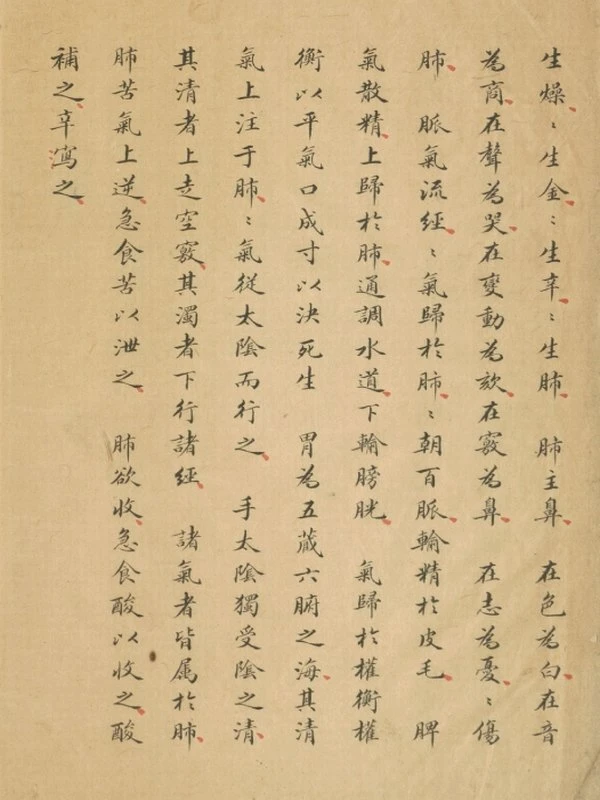 生燥〻生金〻生辛〻生肺　肺主鼻　在色為白在音
為商在聲為哭在變動為欬在竅為鼻　在志為憂〻傷
肺　脈氣流經〻氣歸於肺〻朝百脈輸精於皮毛　脾
氣散精上歸於肺通調水道下輸膀胱　氣歸於權衡權
衡以平氣口成寸以決死生　胃為五蔵六腑之海其清
氣上注于肺〻氣從太陰而行之　手太陰獨受陰之清
其清者上走空竅其濁者下行諸經　諸氣者皆属於肺
肺苦氣上逆急食苦以泄之　肺欲收急食酸以收之酸
補之辛瀉之